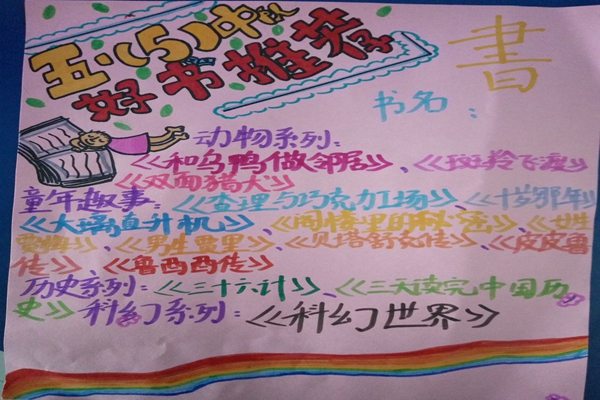 五·(5)中队
好书推荐
書
书名：
动物系列：
《和乌鸦做邻居》、《斑羚飞渡》
《双面猎犬》
童年趣事：《查理与巧克力工场》、《十岁那年》
《大玻璃直升机》、《阁楼里的秘密》、《女生
》、《男生里》、《贝塔舒克传》、《皮皮鲁
传》、《鲁西西传》
历史系列：《三十六计》、《三天读完中国历
史》科幻系列：《科幻世界》